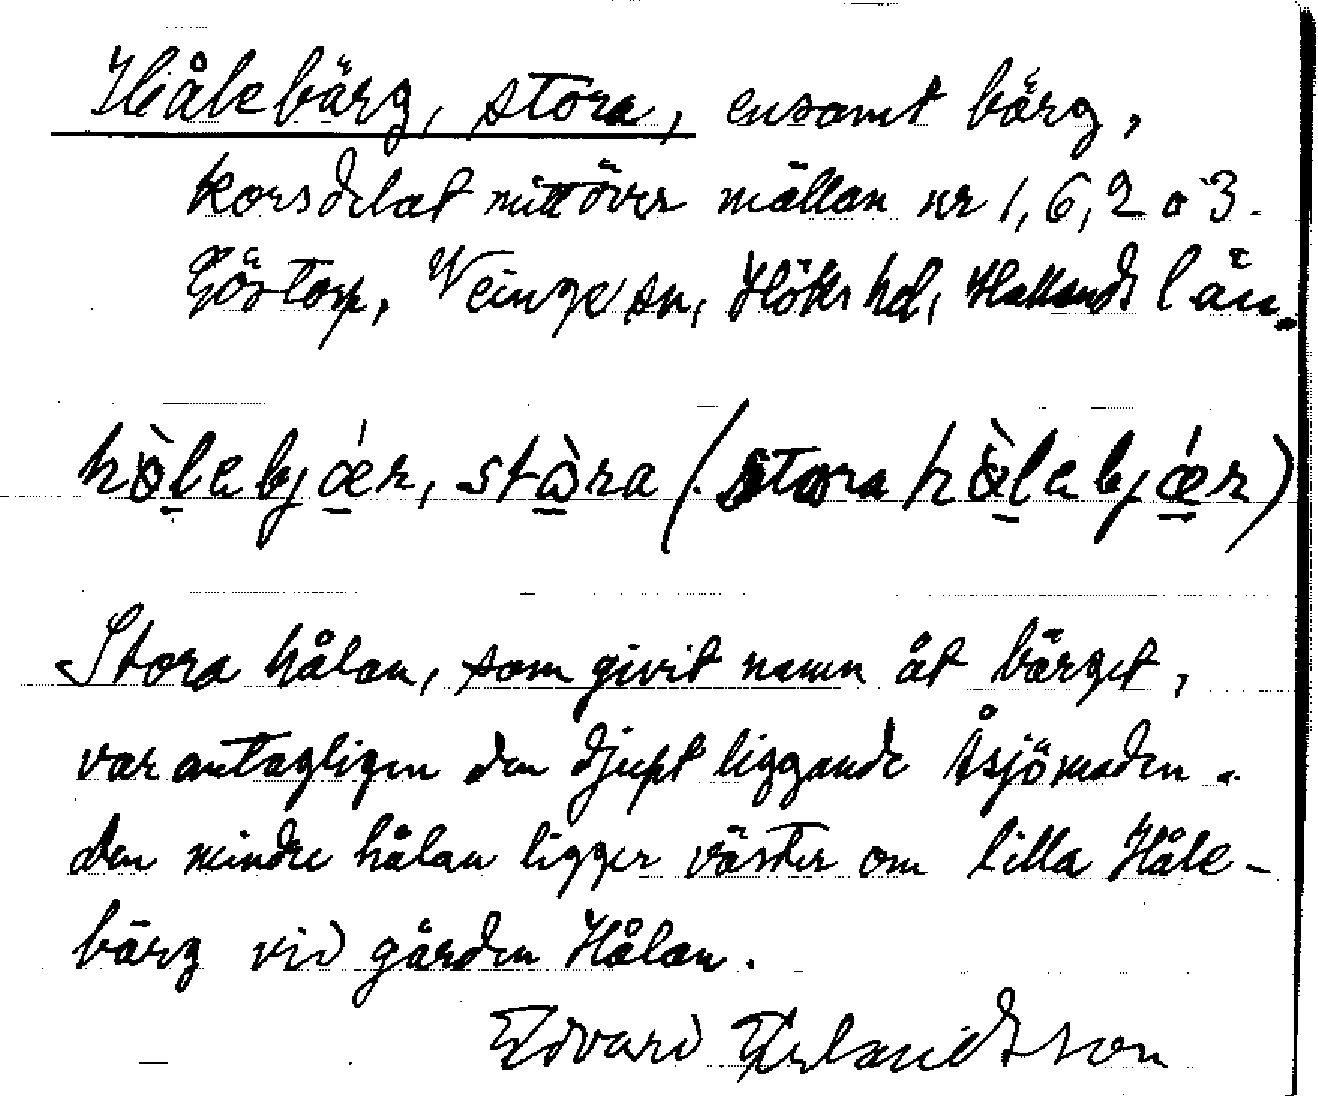 Hålebärg, stora, ensamt bärg,
korsdelat mittöver mällan nr 1, 6, 2 o 3.
Göstorp, Veinge sn, Höks hd, Hallands län.
hòlebjǽr, stòra (stora hòlebjǽr)
Stora hålan, som givit namn åt bärget,
var antagligen den djupt liggande Åsjömaden.
den mindre hålan ligger väster om lilla Håle-
bärg vid gården Hålan.
Edvard Erlandsson